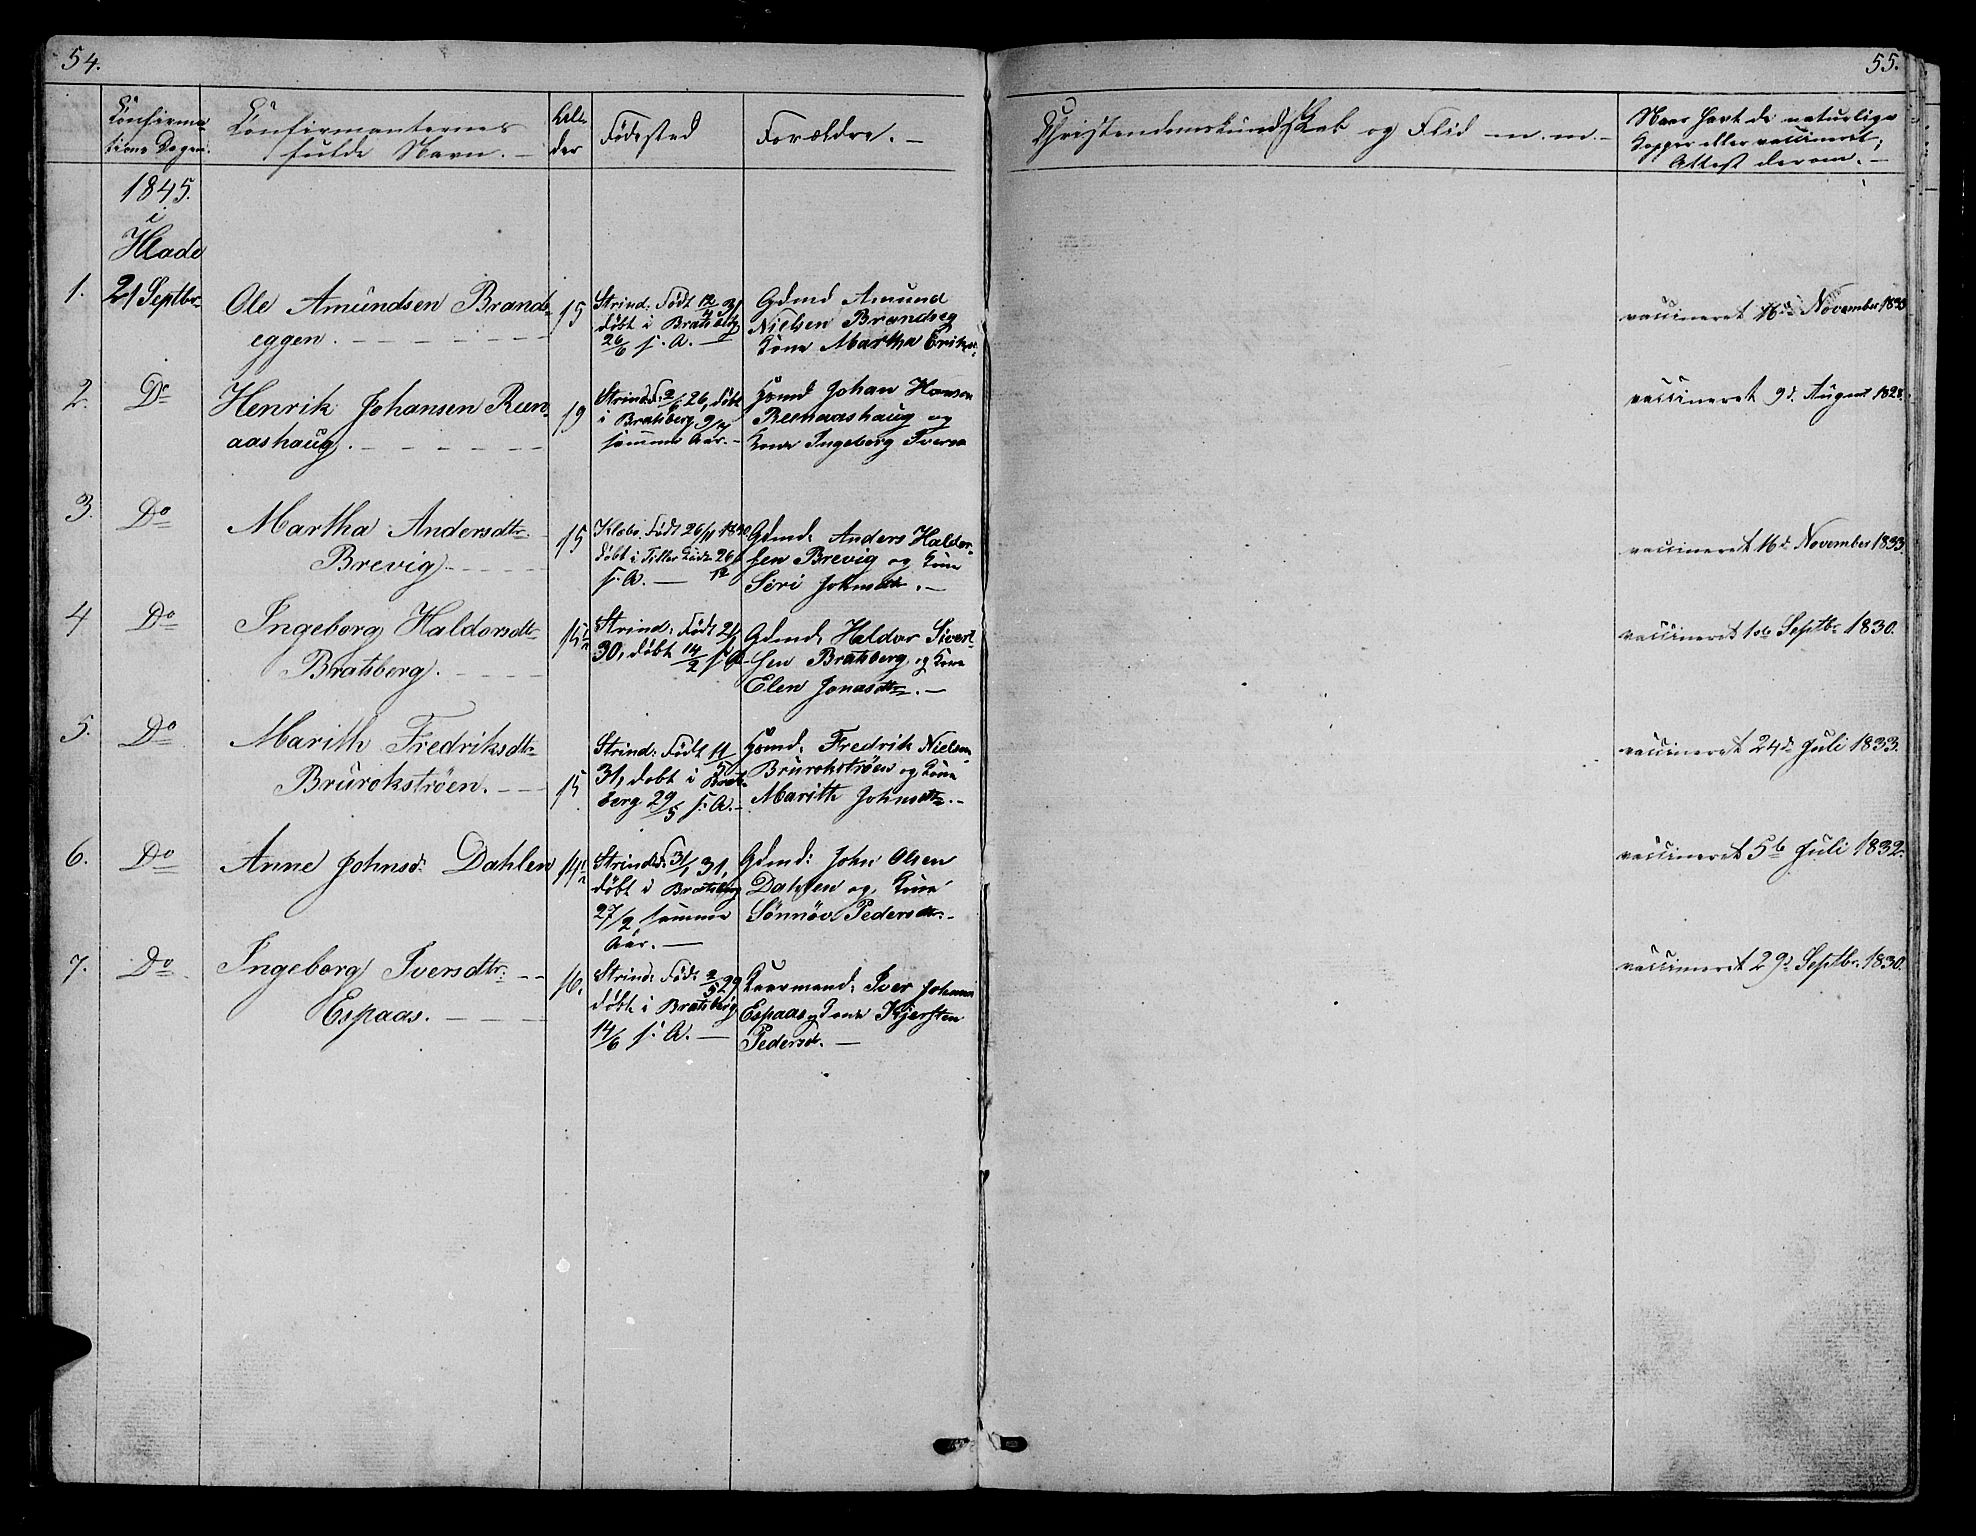 54.
55.
Confirma-
tions Dagen.
Confirmanternes
fulde Navn. —
Al-
der
Fødested
Forældre. —
Christendomskundskab og Flid — m. m. —
Naar havt de naturlige
Kopper eller vaccineret,
Attest derom. —
1845.
i
Hlade
1. 21 Septbr. Ole Amundsen Brands-
eggen.
15
Strind: Født 12/4 31
døbt i Bratsberg
26/6 s. A. —
Gdmd Amund
Nielsen Brandseg
Kone Martha Eriks
vaccineret 16de November 1833
2. Do Henrik Johansen Ren-
aashaug.
19
i Bratsberg 9/7
samme Aar. —
Hsmd Johan Hansen
Renaashaug og
Kone Ingeborg Iversd
vaccineret 9d. August 1828.
3. Do Martha Andersdtr
Brevig.
15
Klebo. Født 26/11 1830
døbt i Tiller Kirke 26/12
s. A. —
Gdmd. Anders Haldor-
sen Brevig og Kone
Siri Johnsdtr. —
vaccineret 16d November 1833.
4 Do Ingeborg Haldorsdtr
Bratsberg.
15 1/2
Strind: Født 2/1
30, døbt 14/2 s. A
Gdmd. Haldor Sivert-
sen Bratsberg og Kone
Elen Jonasdtr. —
vaccineret Septbr. 1830.
5. Do Marith Fredriksdtr
Brurokstrøen.
15.
Strind: Født 11/5
31, døbt i Brats-
berg 29/5 s. A. —
Hsmd. Fredrik Nielsen
Brurokstrøen og Kone
Marith Johnsdtr. —
vaccineret 24de Juli 1833.
6. Do Anne Johnsd. Dahlen
14 1/2
Strind: F. 31/1 31,
døbt i Bratsberg
27/2 samme
Aar. —
Gdmd: John Olsen
Dahlen og Kone
Sønnøv Pedersdtr. —
vaccineret 5te Juli 1832.
7. Do Ingeborg Iversdtr.
Espaas.
16.
Strind: Født 2/5 29
døbt i Bratsberg
14/6 s. A. —
Iver Johnsen
Espaas og Kone Kjersten
Pedersd. —
vaccineret 29d Septbr. 1830.